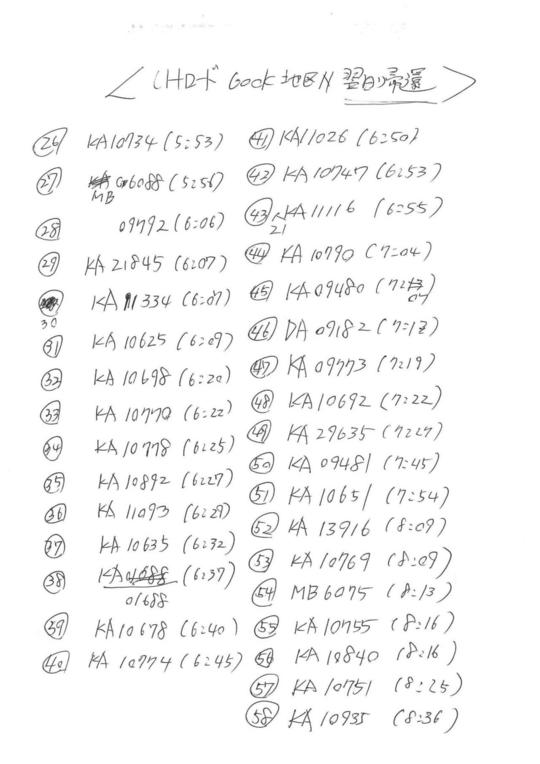 ＜ CHロード Gook 地区N 翌日帰還 ＞
㉖ KA10734 (5:53)
㉗ MB 06088 (5:56)
㉘ 09792 (6:06)
㉙ KA 21845 (6:07)
30 KA 11334 (6:07)
㉛ KA 10625 (6:09)
㉜ KA 10698 (6:20)
㉝ KA 10770 (6:22)
㉞ KA 10778 (6:25)
㉟ KA 10892 (6:27)
㊱ KA 11093 (6:29)
㊲ KA 10635 (6:32)
㊳ KA 01688 (6:37)
01688
㊴ KA 10678 (6:40)
㊵ KA 10774 (6:45)
㊶ KA11026 (6:50)
㊷ KA 10747 (6:53)
㊸ KA 11116 (6:55)
21
㊹ KA 10790 (7:04)
㊺ KA 09480 (7:07)
㊻ DA 09182 (7:18)
㊼ KA 09773 (7:19)
㊽ KA 10692 (7:22)
㊾ KA 29635 (7:27)
㊿ KA 09481 (7:45)
51 KA 10651 (7:54)
52 KA 13916 (8:09)
53 KA 10769 (8:09)
54 MB 6075 (8:13)
55 KA 10755 (8:16)
56 KA 10840 (8:16)
57 KA 10751 (8:25)
58 KA 10935 (8:36)